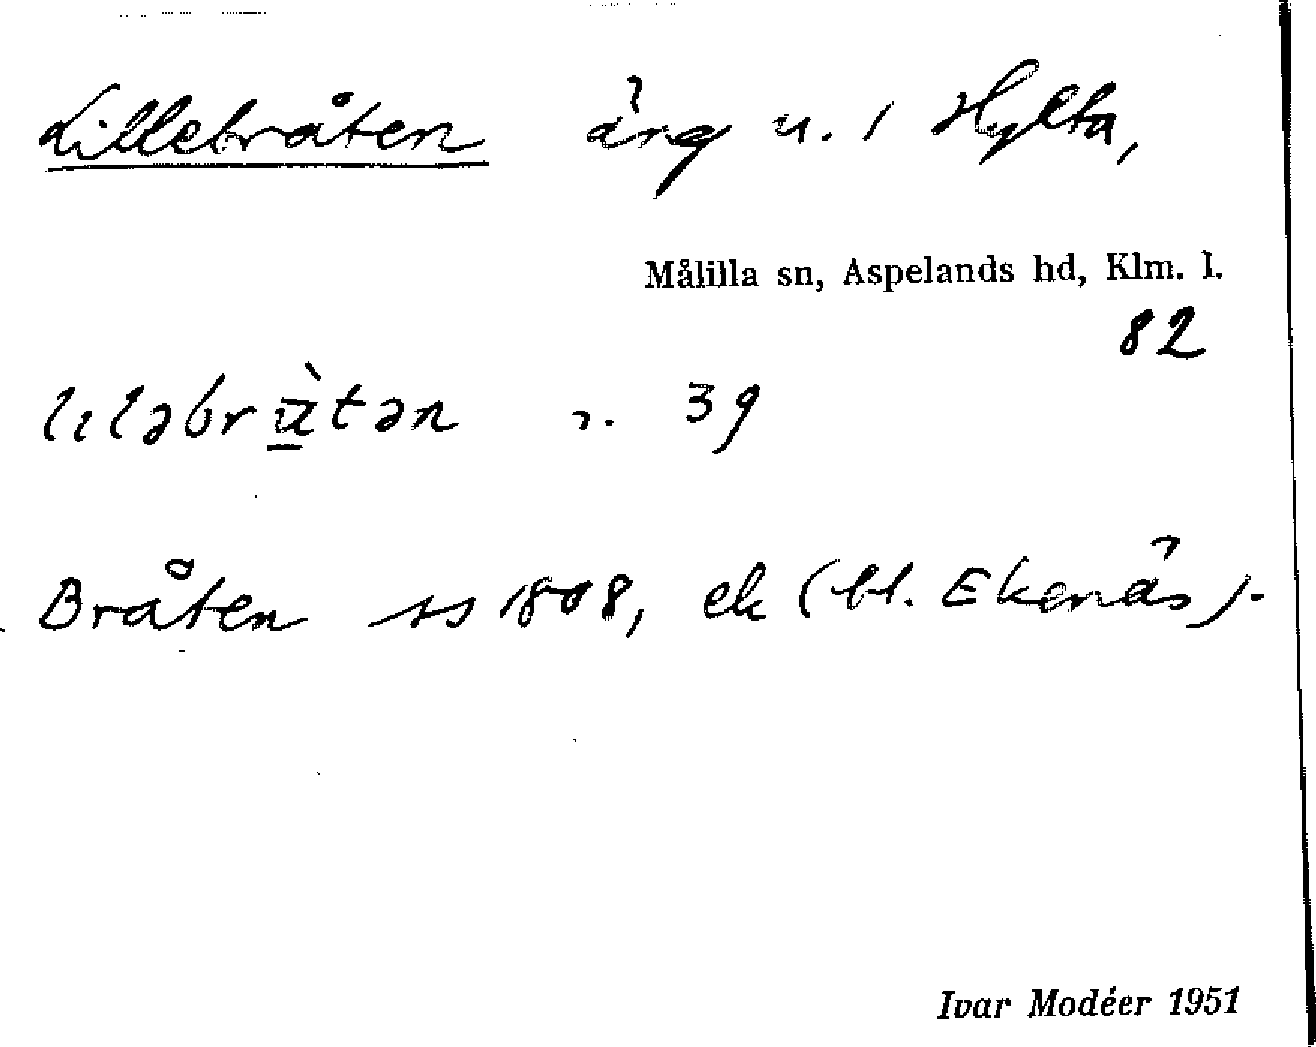 Lillebråten äng u. 1 Hylta,
Målilla sn, Aspelands hd, Klm. l.
82
lıləbràtən r. 39
Bråten ss 1808, ek (bl. Ekenäs).
Ivar Modéer 1951